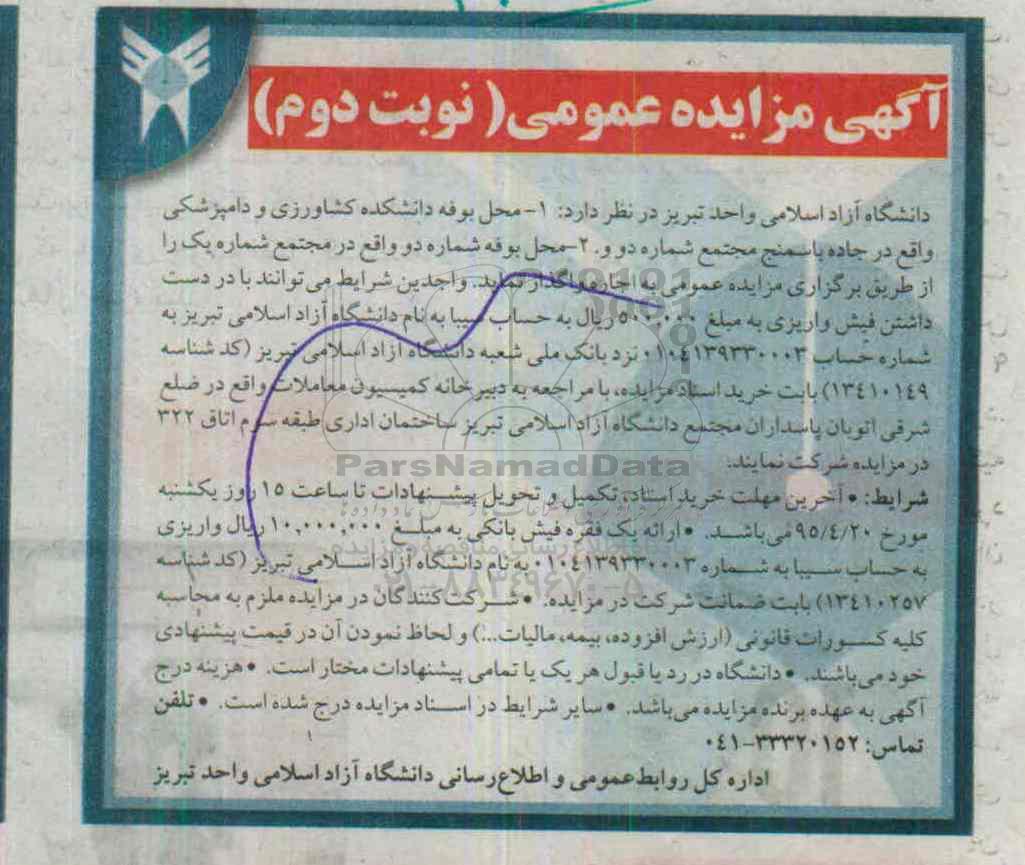 آگهی مزایده عمومی( نوبت دوم)
دانشگاه آزاد اسلامی واحد تبریز در نظر دارد: ۱- محل بوفه دانشکده کشاورزی و دامپزشکی
واقع در جاده باسمنج مجتمع شماره دو و. ۲-محل بوفه شماره دو واقع در مجتمع شماره یک را
از طریق برگزاری مزایده عمومی به اجاره واگذار نماید. واجدین شرایط می توانند با در دست
داشتن فیش واریزی به مبلغ ۵۰۰,۰۰۰ ریال به حساب سیبا به نام دانشگاه آزاد اسلامی تبریز به
شماره حساب ۰۱۰۴۱۳۹۳۳۰۰۰۳ نزد بانک ملی شعبه دانشگاه آزاد اسلامی تبریز (کد شناسه
۱۳۴۱۰۱۴۹) بابت خرید اسناد مزایده، با مراجعه به دبیرخانه کمیسیون معاملات واقع در ضلع
شرقی اتوبان پاسداران مجتمع دانشگاه آزاد اسلامی تبریز ساختمان اداری طبقه سوم اتاق ۳۲۲
ParsNamadData
در مزایده شرکت نمایند.
شرایط: • آخرین مهلت خرید اسناد، تکمیل و تحویل پیشنهادات تا ساعت ۱۵ روز یکشنبه
مورخ ۹۵/۴/۲۰ می باشد. • ارائه یک فقره فیش بانکی به مبلغ ۱۰,۰۰۰,۰۰۰ ریال واریزی
به حساب سیبا به شماره ۰۱۰۴۱۳۹۳۳۰۰۰۳ به نام دانشگاه آزاد اسلامی تبریز (کد شناسه
۰۲۱-۸۸۳۴۹۶۷۰-۵
۱۳۴۱۰۲۵۷) بابت ضمانت شرکت در مزایده. • شرکت کنندگان در مزایده ملزم به محاسبه
کلیه کسورات قانونی (ارزش افزوده، بیمه، مالیات...) و لحاظ نمودن آن در قیمت پیشنهادی
خود می باشند. • دانشگاه در رد یا قبول هر یک یا تمامی پیشنهادات مختار است. • هزینه درج
آگهی به عهده برنده مزایده می باشد. • سایر شرایط در اسناد مزایده درج شده است. • تلفن
تماس: ۳۳۳۲۰۱۵۲-۰۴۱
اداره کل روابط عمومی و اطلاع رسانی دانشگاه آزاد اسلامی واحد تبریز